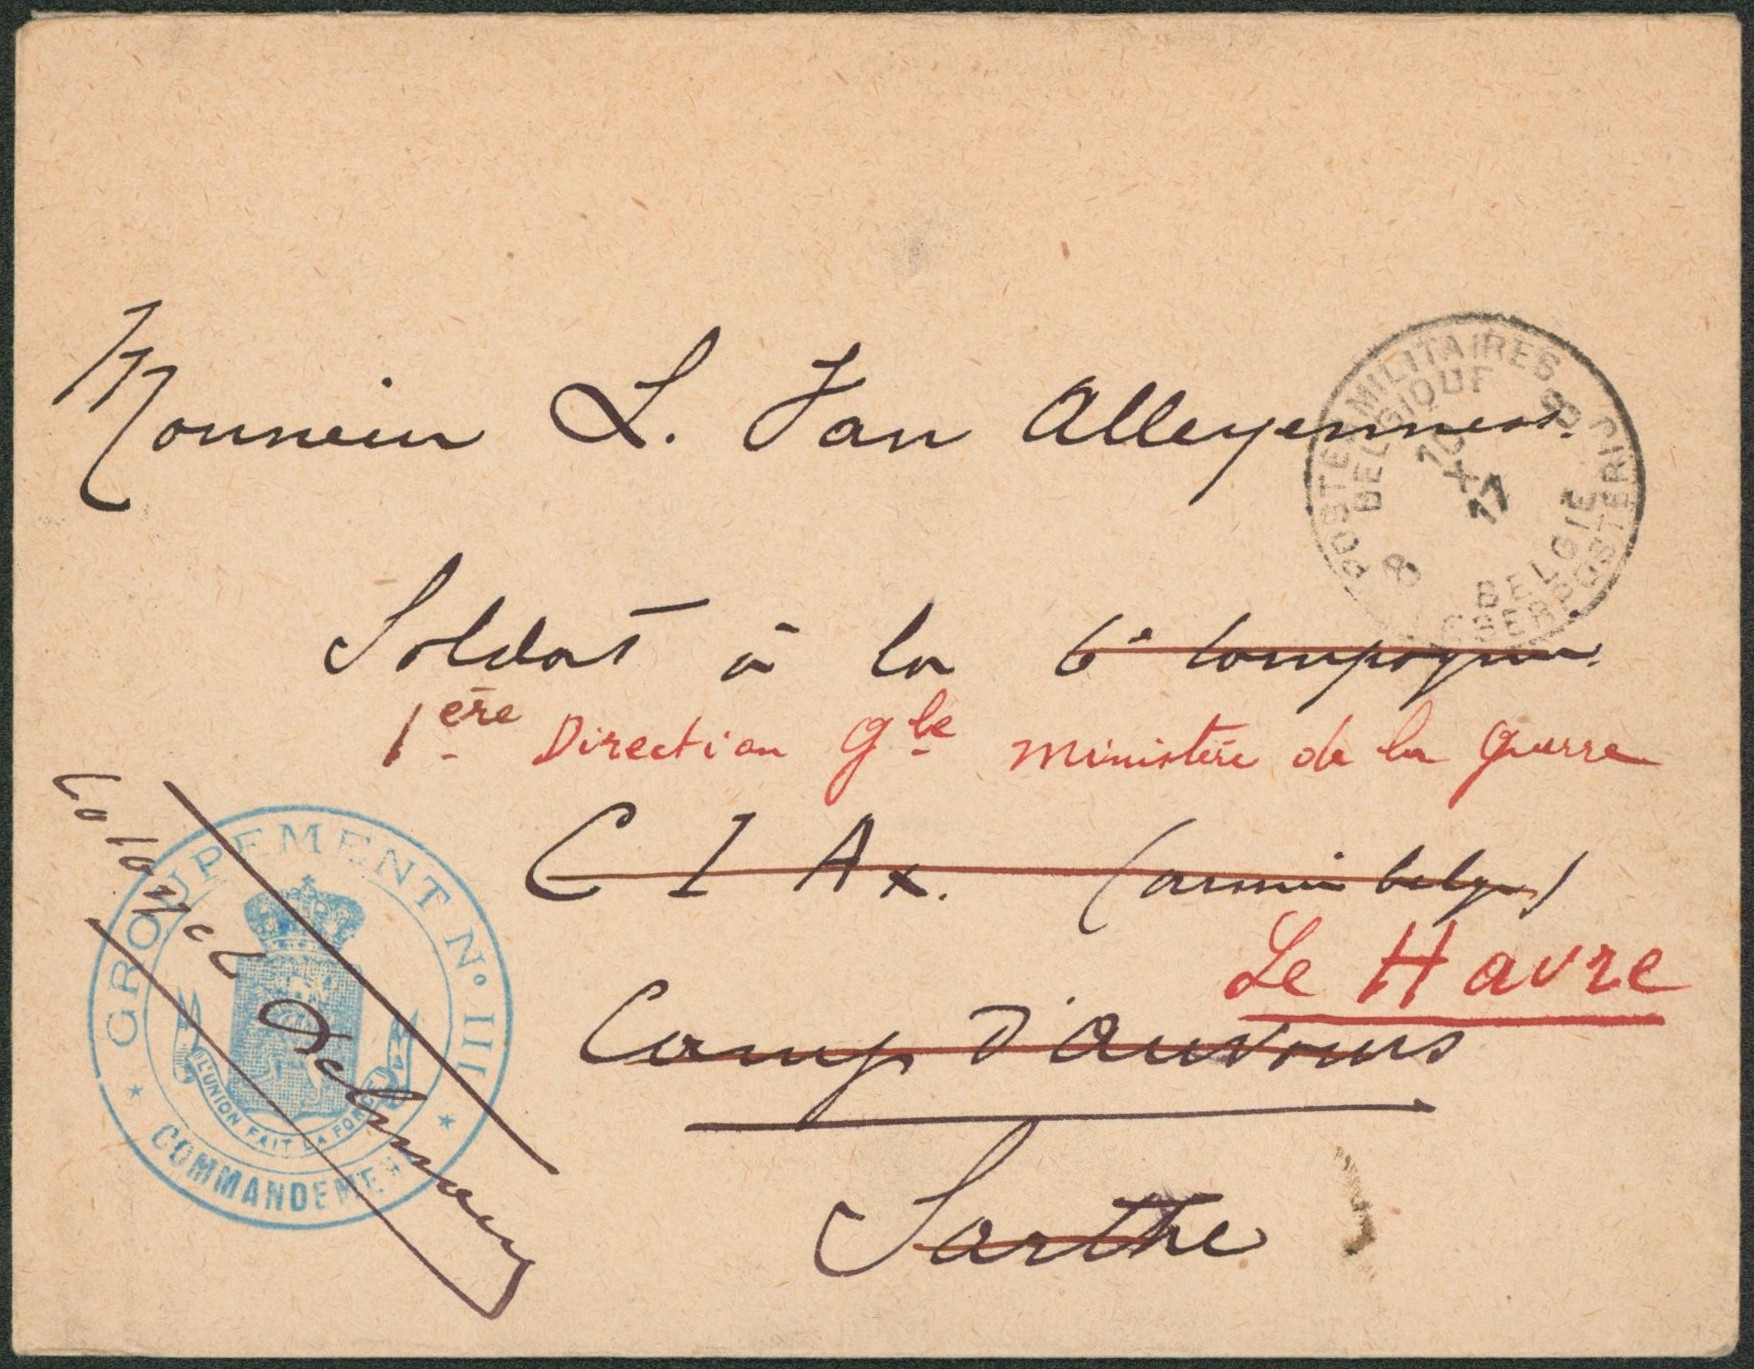 Monsieur L. Van Alleyennes.
POSTES MILITAIRES
BELGIQUE
8
10
X
17
8
BELGIE
Soldat à la 6e Compagnie.
1ère Direction Gle Ministère de la Guerre
C I Ax. (armée belge)
Le Havre
Camp d'Auvours
Sarthe
GROUPEMENT No III
L'UNION FAIT LA FORCE
COMMANDEMENT
Colonel